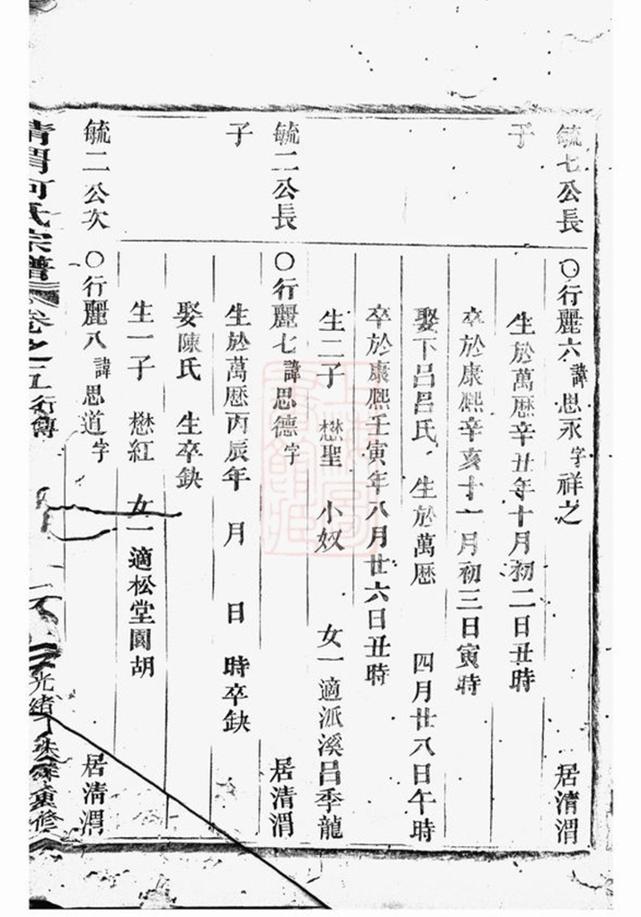 毓七公長子
〇行麗六 諱思永 字祥之 居清渭
生於萬厯辛丑年十月初二日丑時
卒於康熙辛亥十一月初三日寅時
娶下呂呂氏 生於萬厯 四月廿八日午時
卒於康熙壬寅年八月廿六日丑時
生二子 懋聖 小奴 女一適派溪呂季龍
毓二公長子
〇行麗七 諱思德 字 居清渭
生於萬厯丙辰年 月 日 時卒缺
娶陳氏 生卒缺
生一子 懋紅 女一適松堂園胡
毓二公次
〇行麗八 諱思道 字 居清渭
清渭何氏宗譜 卷之五 行傳 光緒 重修